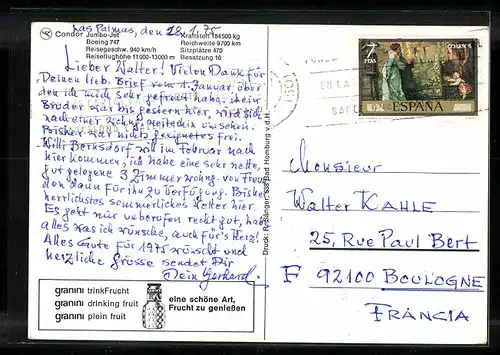 Las Palmas, den 28.1.75
Condor Jumbo-Jet
Boeing 747
Reisegeschw. 940 km/h
Reiseflughöhe 11000-13000 m
Kraftstoff 184500 kg
Reichweite 9700 km
Sitzplätze 470
Besatzung 16
Lieber Walter! Vielen Dank für
Deinen lieb. Brief vom 1. Januar, über
den ich mich sehr gefreut habe. Mein
Bruder war bis gestern hier, wird sich
nach einer Wohng. weiterhin umsehen.
Bisher war nichts geeignetes frei.
Willi Bornsdorf will im Februar nach
hier kommen, ich habe eine sehr nette,
gut gelegene 3 Zimmerwohng. von Freun-
den dann für ihn zu Verfügung. Bisher
herrlichstes sommerliches Wetter hier.
Es geht mir unberufen recht gut, hab
alles was ich wünsche, auch für's Herz!
Alles Gute für 1975 wünscht und
herzliche Grüsse sendet Dir
Dein Gerhard.
granini trinkFrucht
granini drinking fruit
granini plein fruit
eine schöne Art,
Frucht zu genießen
Druck: R. Bolanger, 638 Bad Homburg v.d.H.
7
PTAS
CORREOS
ESPAÑA
Monsieur
Walter KAHLE
25, Rue Paul Bert
F 92100 BOULOGNE
FRANCIA